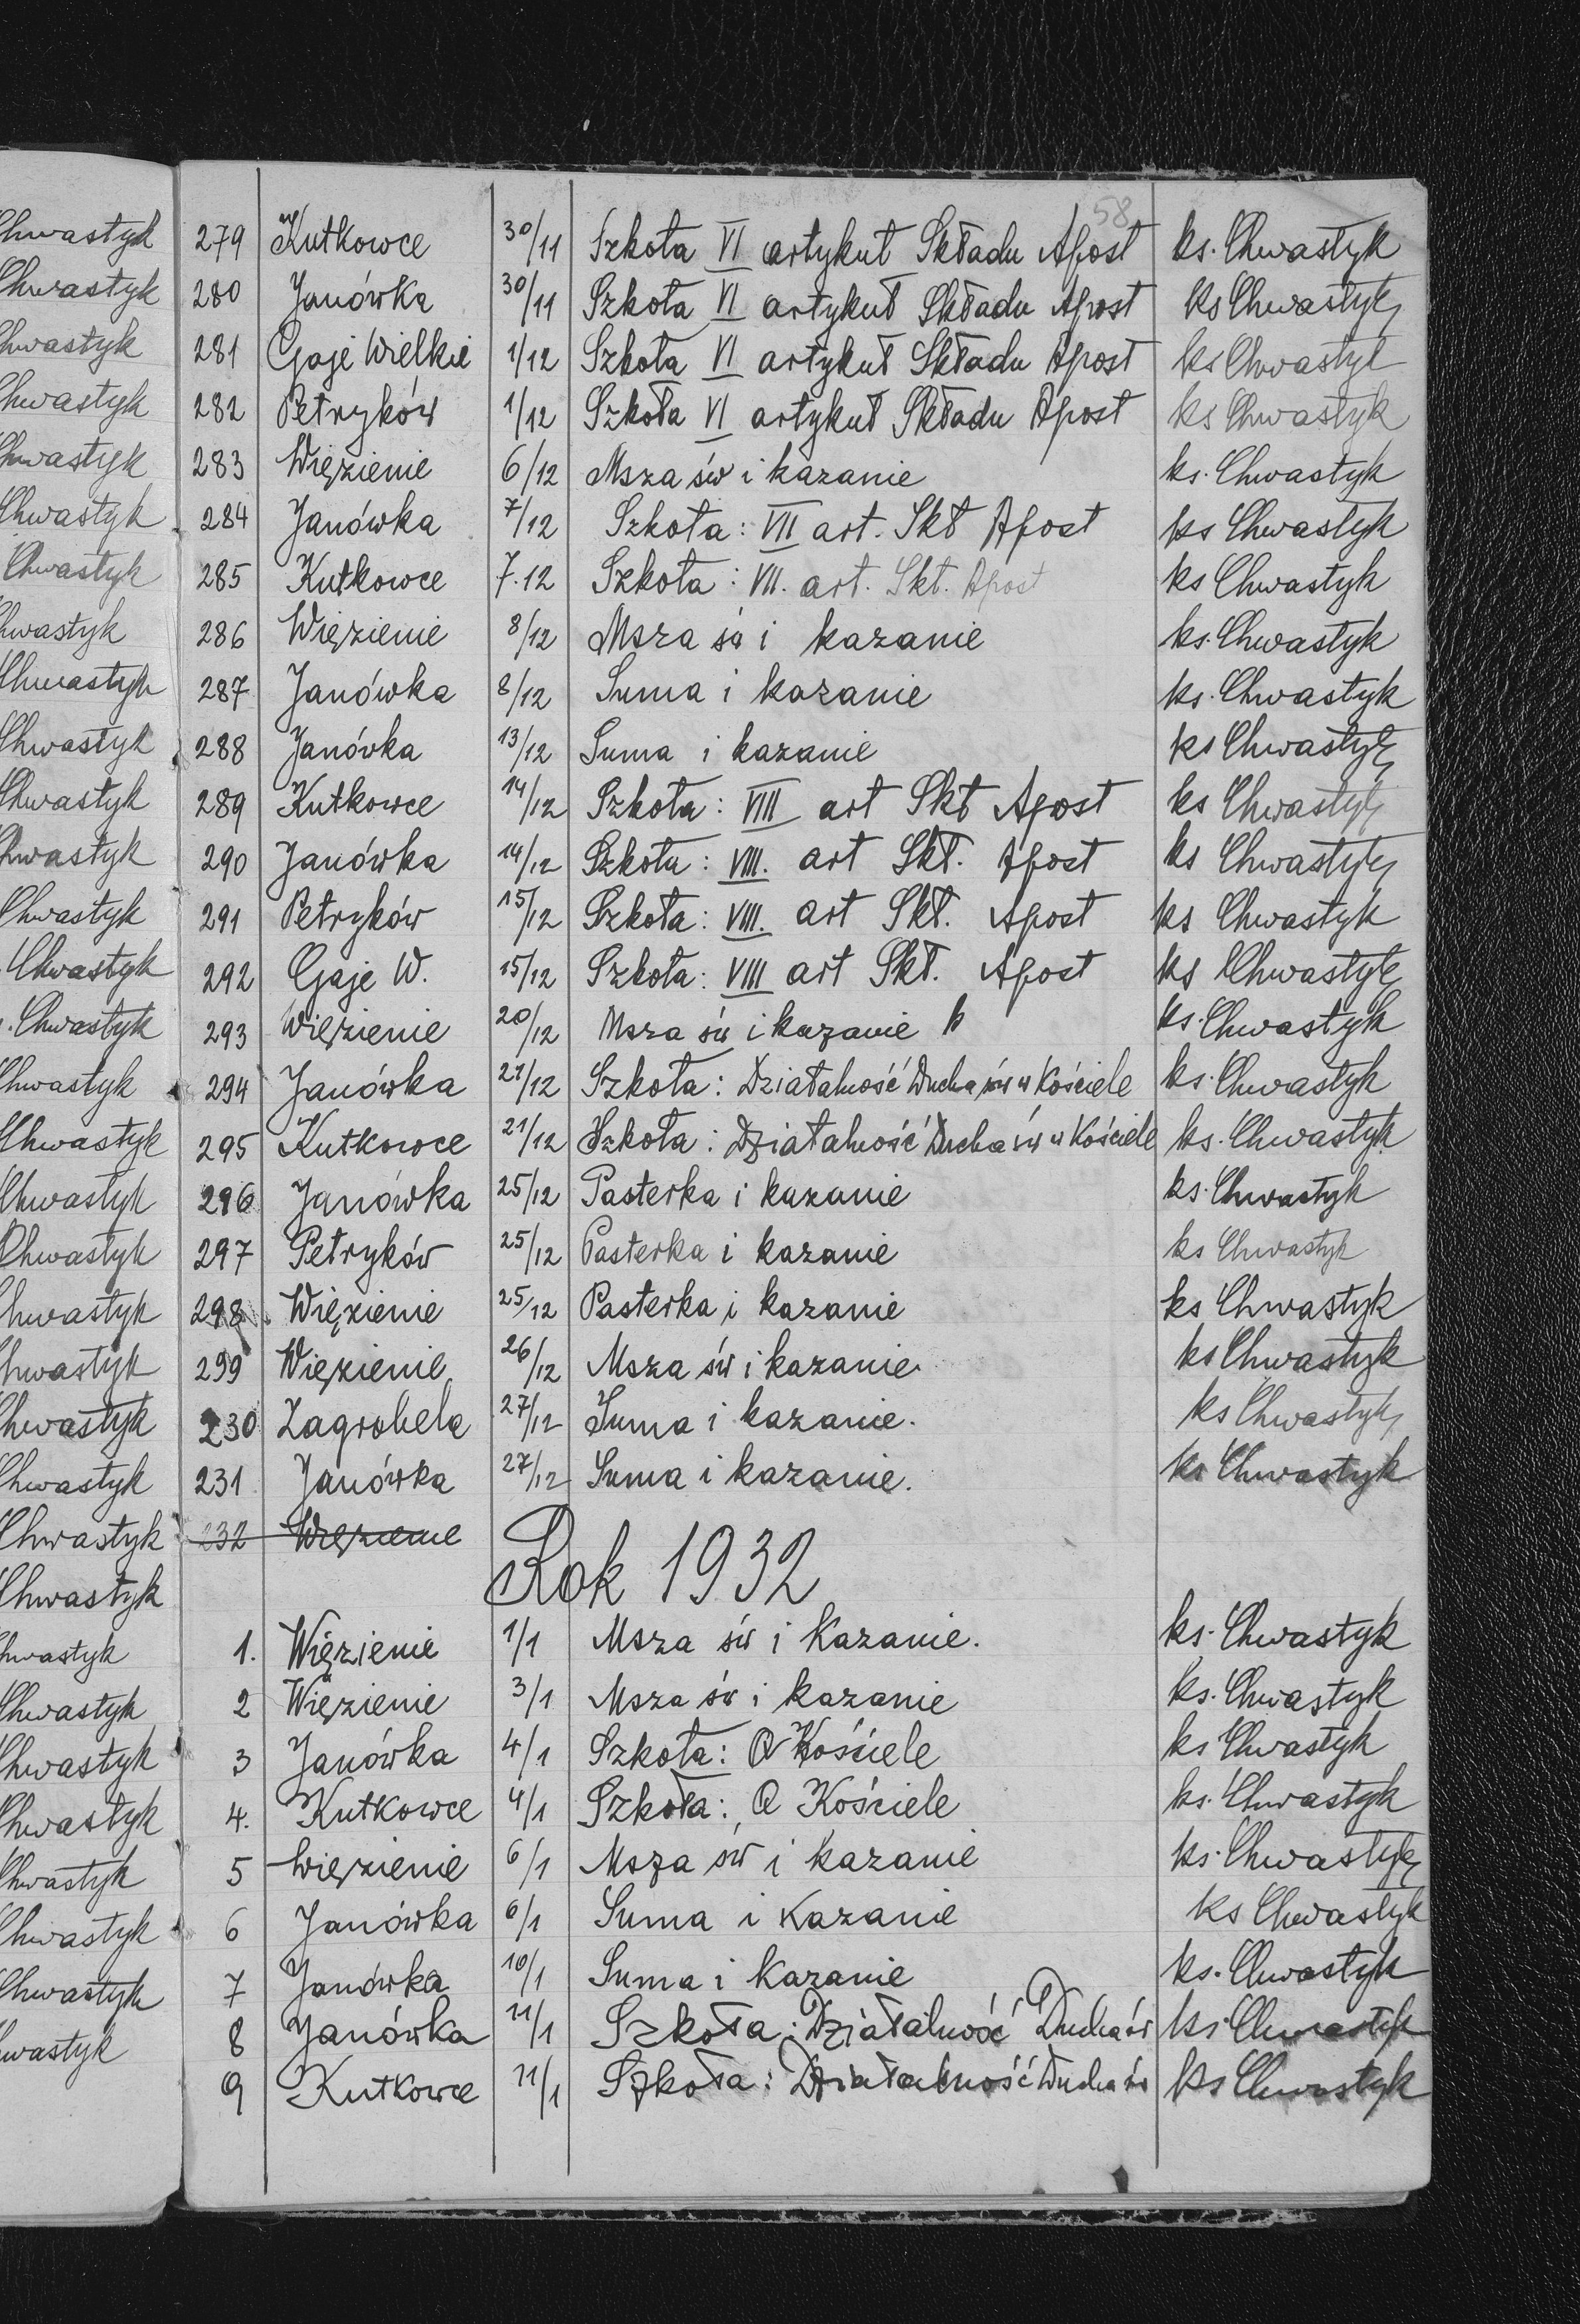 58
279 Kutkowce 30/11 Szkoła VI artykuł Składu Apost ks. Chwastyk
280 Janówka 30/11 Szkoła VI artykuł Składu Apost ks Chwastyk
281 Gaje Wielkie 1/12 Szkoła VI artykuł Składu Apost ks Chwastyk
282 Petryków 1/12 Szkoła VI artykuł Składu Apost ks Chwastyk
283 Więzienie 6/12 Msza św i kazanie ks. Chwastyk
284 Janówka 7/12 Szkoła: VII art. Skł Apost ks Chwastyk
285 Kutkowce 7.12 Szkoła: VII. art. Skł. Apost ks Chwastyk
286 Więzienie 8/12 Msza św i kazanie ks. Chwastyk
287 Janówka 8/12 Suma i kazanie ks. Chwastyk
288 Janówka 13/12 Suma i kazanie ks Chwastyk
289 Kutkowce 14/12 Szkoła: VIII art Skł Apost ks Chwastyk
290 Janówka 14/12 Szkoła: VIII. art Skł. Apost ks Chwastyk
291 Petryków 15/12 Szkoła: VIII. art Skł. Apost ks Chwastyk
292 Gaje W. 15/12 Szkoła: VIII art Skł. Apost ks Chwastyk
293 Więzienie 20/12 Msza św i kazanie ks. Chwastyk
294 Janówka 21/12 Szkoła: Działalność Ducha św w Kościele ks. Chwastyk
295 Kutkowce 21/12 Szkoła: Działalność Ducha św w Kościele ks. Chwastyk
296 Janówka 25/12 Pasterka i kazanie ks. Chwastyk
297 Petryków 25/12 Pasterka i kazanie ks Chwastyk
298 Więzienie 25/12 Pasterka i kazanie ks Chwastyk
299 Więzienie 26/12 Msza św i kazanie ks Chwastyk
230 Zagrobela 27/12 Suma i kazanie. ks Chwastyk
231 Janówka 27/12 Suma i kazanie. ks Chwastyk
232 Więzienie
Rok 1932
1. Więzienie 1/1 Msza św i Kazanie. ks. Chwastyk
2 Więzienie 3/1 Msza św i kazanie ks. Chwastyk
3 Janówka 4/1 Szkoła: O Kościele ks Chwastyk
4. Kutkowce 4/1 Szkoła: O Kościele ks. Chwastyk
5 Więzienie 6/1 Msza św i kazanie ks. Chwastyk
6 Janówka 6/1 Suma i Kazanie ks Chwastyk
7 Janówka 10/1 Suma i Kazanie ks. Chwastyk
8 Janówka 11/1 Szkoła: Działalność Ducha św ks. Chwastyk
9 Kutkowce 11/1 Szkoła: Działalność Ducha św ks Chwastyk